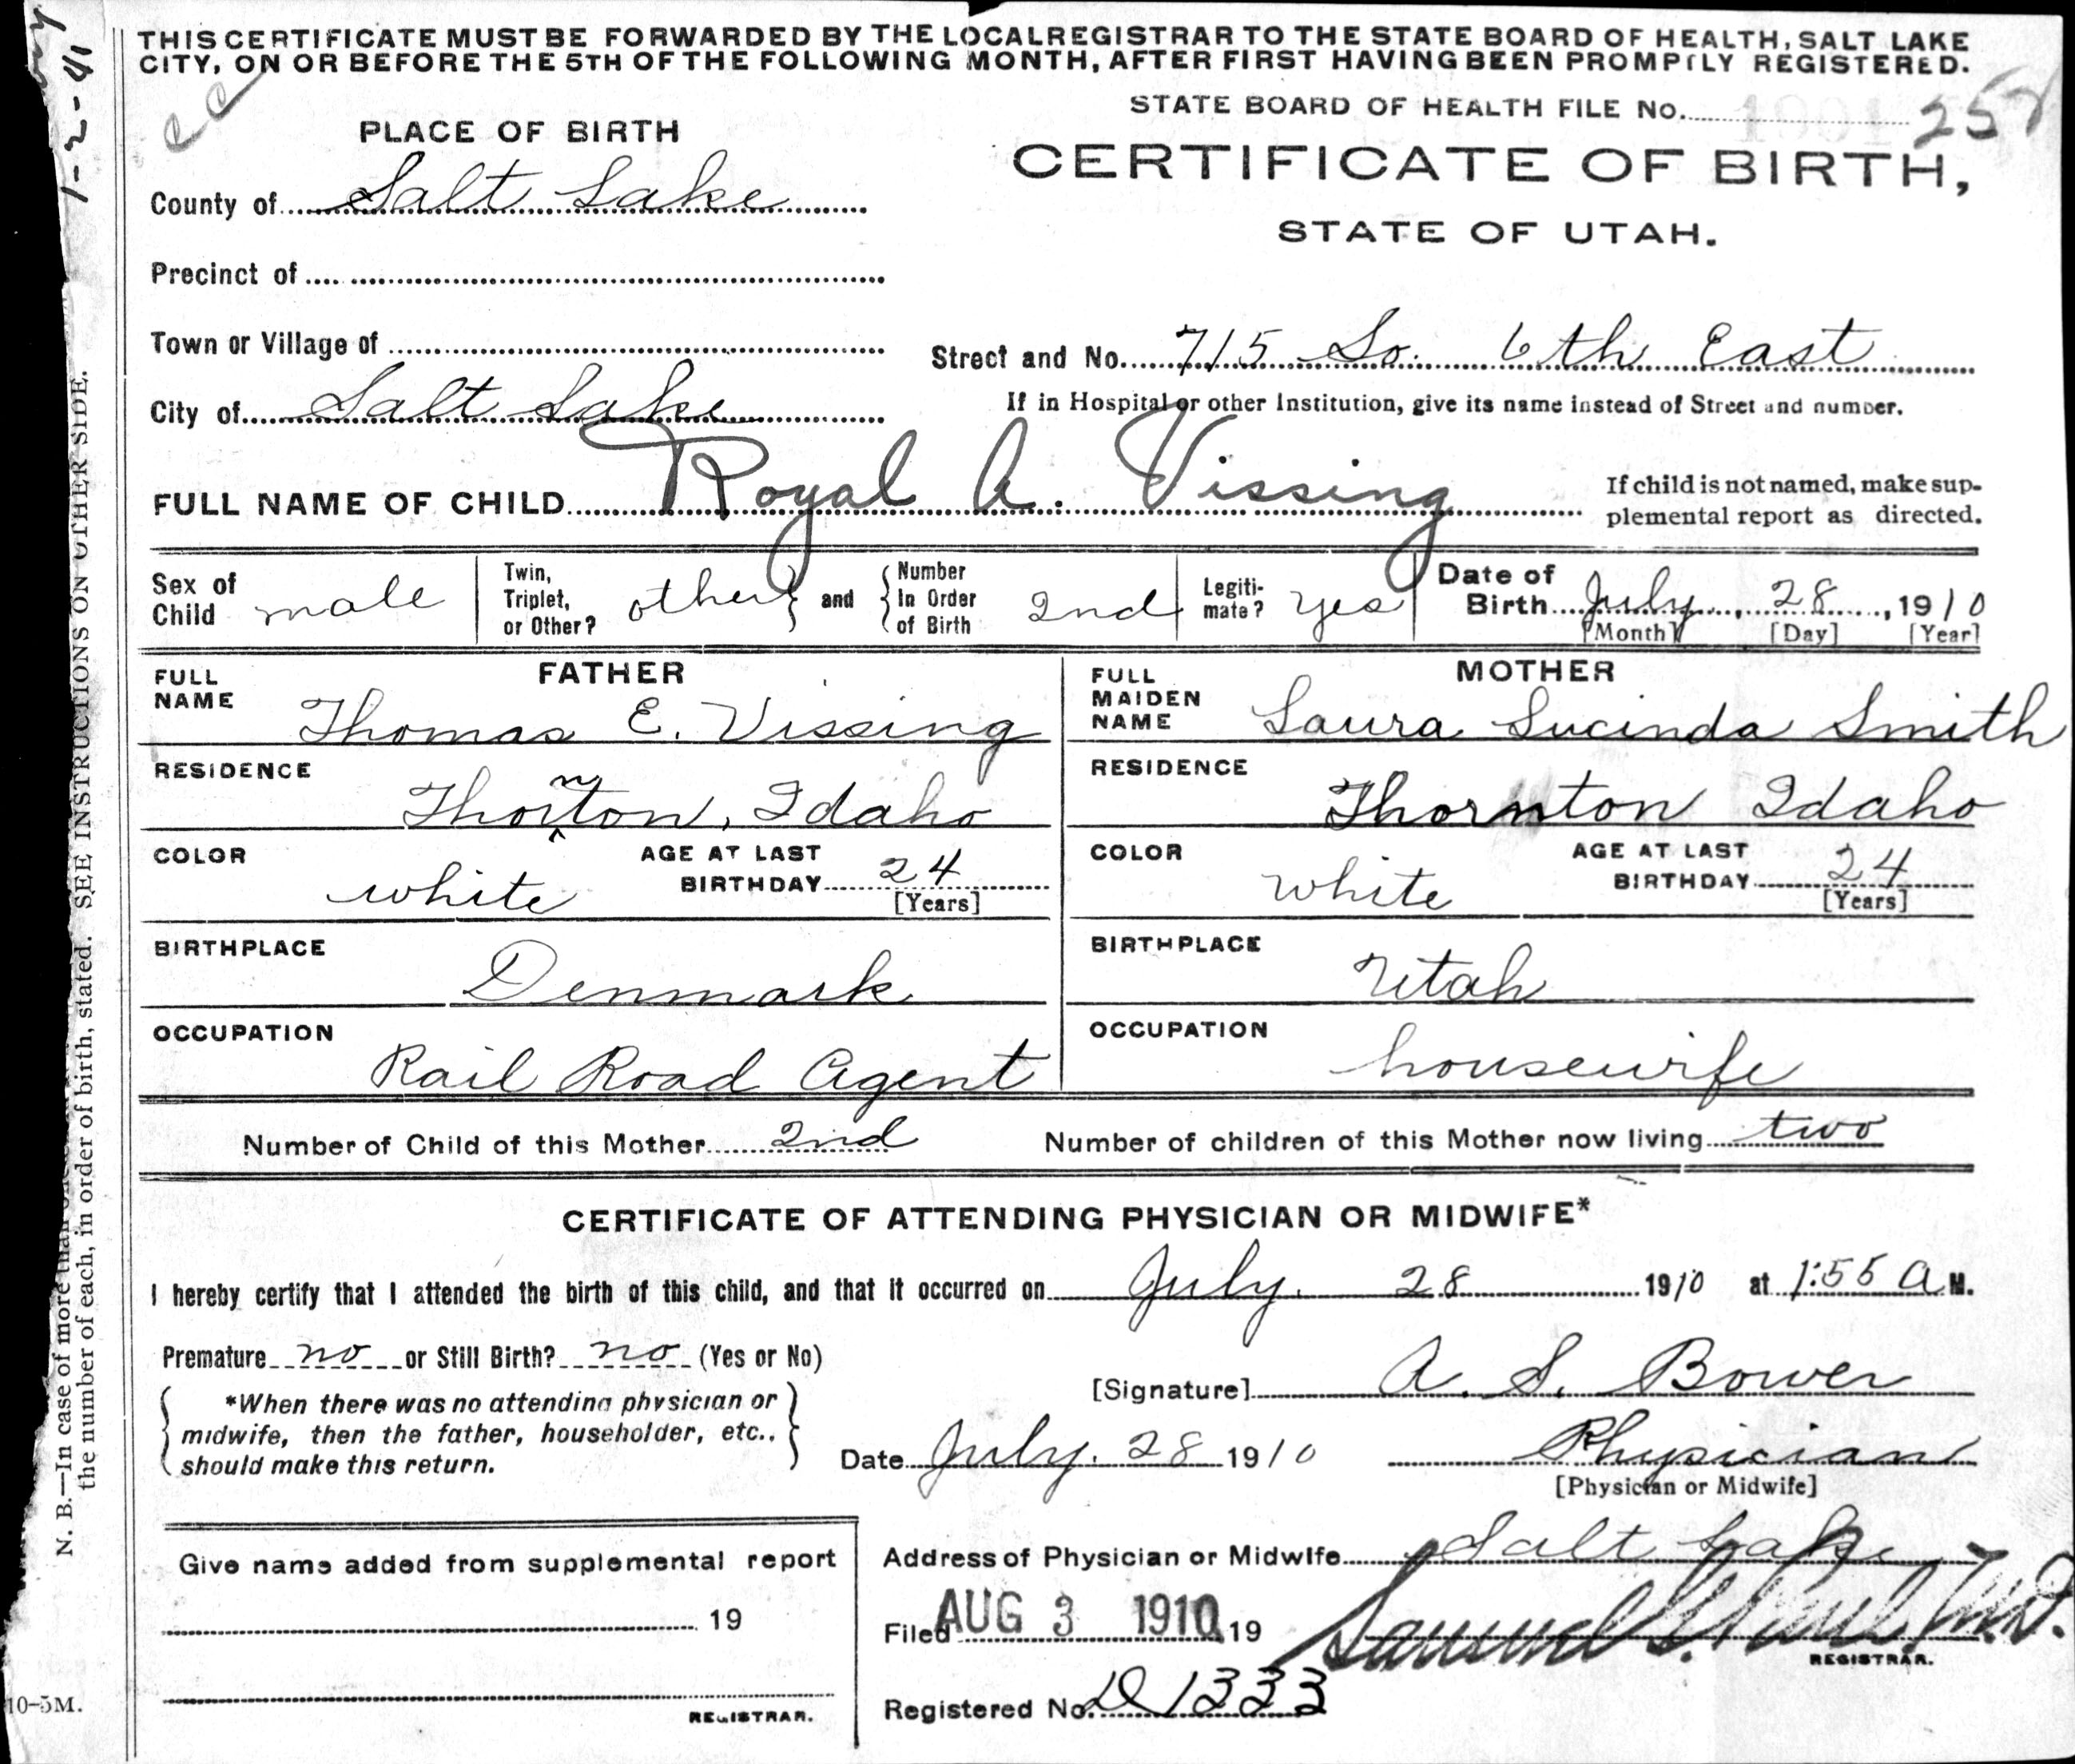 THIS CERTIFICATE MUST BE FORWARDED BY THE LOCAL REGISTRAR TO THE STATE BOARD OF HEALTH, SALT LAKE
CITY, ON OR BEFORE THE 5TH OF THE FOLLOWING MONTH, AFTER FIRST HAVING BEEN PROMPTLY REGISTERED.
1-2-41
STATE BOARD OF HEALTH FILE No.
PLACE OF BIRTH
CERTIFICATE OF BIRTH,
STATE OF UTAH.
County of Salt Lake
Precinct of
Town or Village of
Street and No. 715 So. 6th East
City of Salt Lake
If in Hospital or other Institution, give its name instead of Street and number.
FULL NAME OF CHILD Royal A. Vissing
If child is not named, make sup-
plemental report as directed.
Sex of Child male
Twin, Triplet, or Other? other and Number In Order of Birth 2nd
Legiti-mate? yes
Date of Birth July, 28, 1910
[Month] [Day] [Year]
FATHER
FULL NAME Thomas E. Vissing
RESIDENCE Thornton, Idaho
COLOR white AGE AT LAST BIRTHDAY 24
[Years]
BIRTHPLACE Denmark
OCCUPATION Rail Road Agent
MOTHER
FULL MAIDEN NAME Laura Lucinda Smith
RESIDENCE Thornton Idaho
COLOR white AGE AT LAST BIRTHDAY 24
[Years]
BIRTHPLACE Utah
OCCUPATION housewife
Number of Child of this Mother 2nd Number of children of this Mother now living two
CERTIFICATE OF ATTENDING PHYSICIAN OR MIDWIFE*
I hereby certify that I attended the birth of this child, and that it occurred on July. 28 1910 at 1:55 A M.
Premature no or Still Birth? no (Yes or No)
[Signature] A. S. Bower
*When there was no attending physician or
midwife, then the father, householder, etc.,
should make this return.
Date July. 28 1910 Physician
[Physician or Midwife]
Give name added from supplemental report
19
REGISTRAR.
Address of Physician or Midwife Salt Lake
Filed AUG 3 1910 19
Samuel G. M.D.
REGISTRAR.
Registered No. D 1333
N. B.—In case of more than
the number of each, in order of birth, stated. SEE INSTRUCTIONS ON OTHER SIDE.
10-5M.